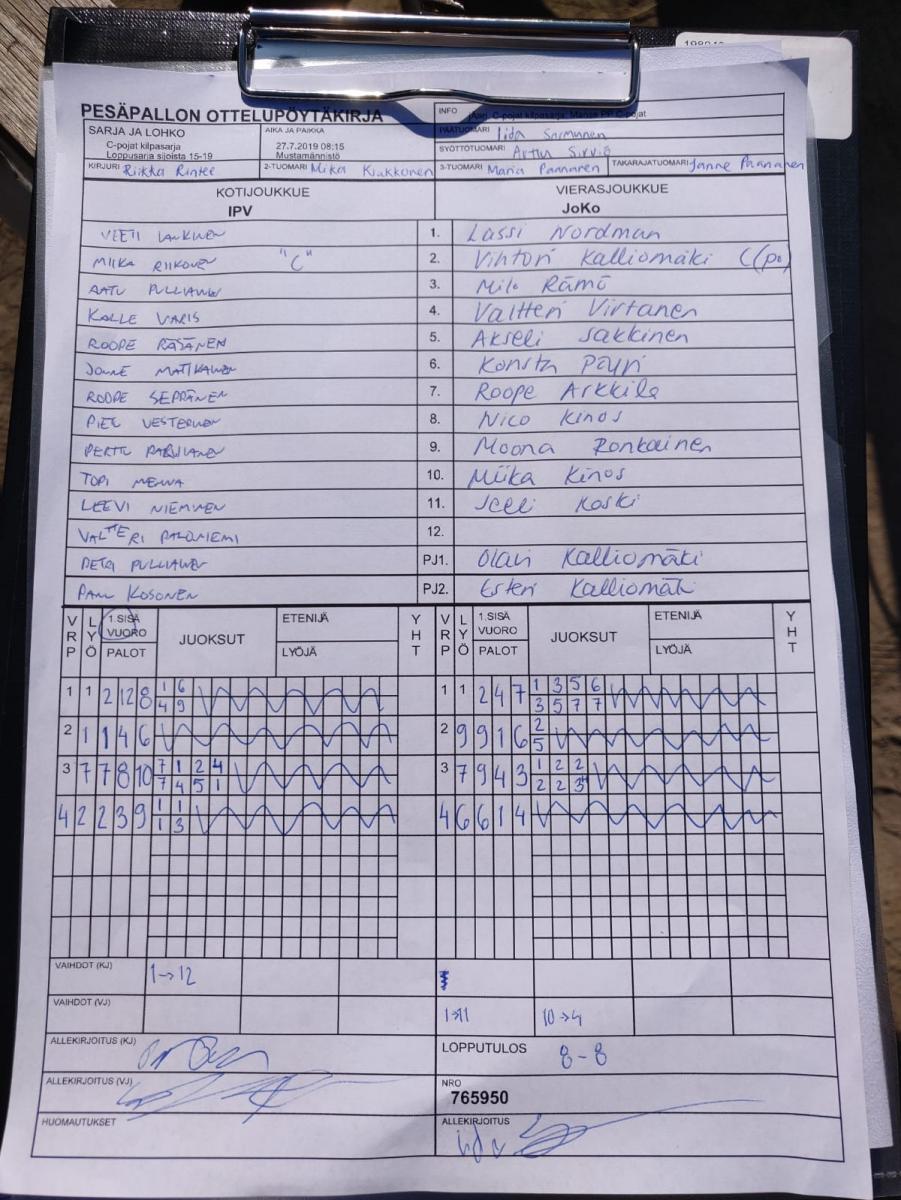 PESÄPALLON OTTELUPÖYTÄKIRJA
INFO C-pojat kilpasarja; Manse PP C-pojat
SARJA JA LOHKO
C-pojat kilpasarja
Loppusarja sijoista 15-19
AIKA JA PAIKKA
27.7.2019 08:15
Mustamännistö
PÄÄTUOMARI Iida
SYÖTTÖTUOMARI Arttu Sirviö
KIRJURI Riikka Rintee
2-TUOMARI Mika Kiukkonen
3-TUOMARI Maria Paananen
TAKARAJATUOMARI Janne Paananen
KOTIJOUKKUE
IPV
VIERASJOUKKUE
JoKo
VEETI LAUKKANEN 1. Lassi Nordman
MIIKA RIIKONEN "C" 2. Vihtori Kalliomäki C(po)
AATU PULLIAINEN 3. Milo Rämö
KALLE VARIS 4. Valtteri Virtanen
ROOPE RÄSÄNEN 5. Akseli Sakkinen
JONNE MATIKAINEN 6. Konsta Päyri
ROOPE SEPPÄNEN 7. Roope Arkkila
8. Nico Kinos
PERTTU 9. Moona Ronkainen
TOPI 10. Miika Kinos
LEEVI NIEMINEN 11. Koski
VALTTERI PALONIEMI 12.
PETRI PULLIAINEN PJ1. Olavi Kalliomäki
KOSONEN PJ2. Esteri Kalliomäki
VRP LYÖ 1.SISÄ VUORO PALOT JUOKSUT ETENIJÄ LYÖJÄ YHT VRP LYÖ 1.SISÄ VUORO PALOT JUOKSUT ETENIJÄ LYÖJÄ YHT
1 6 1 3 5 6
1 1 2 12 8 1 1 2 4 7
4 9 3 5 7 7
2 1 1 4 6 2 9 9 1 6 2
5
7 1 2 4 1 2 2
3 7 7 8 10 3 7 9 4 3
7 4 5 1 2 2 3
1 1
4 2 2 3 9 4 6 6 1 4
1 3
VAIHDOT (KJ) 1→12
VAIHDOT (VJ) 1→11 10→4
ALLEKIRJOITUS (KJ)
LOPPUTULOS 8-8
ALLEKIRJOITUS (VJ)
NRO
765950
HUOMAUTUKSET
ALLEKIRJOITUS